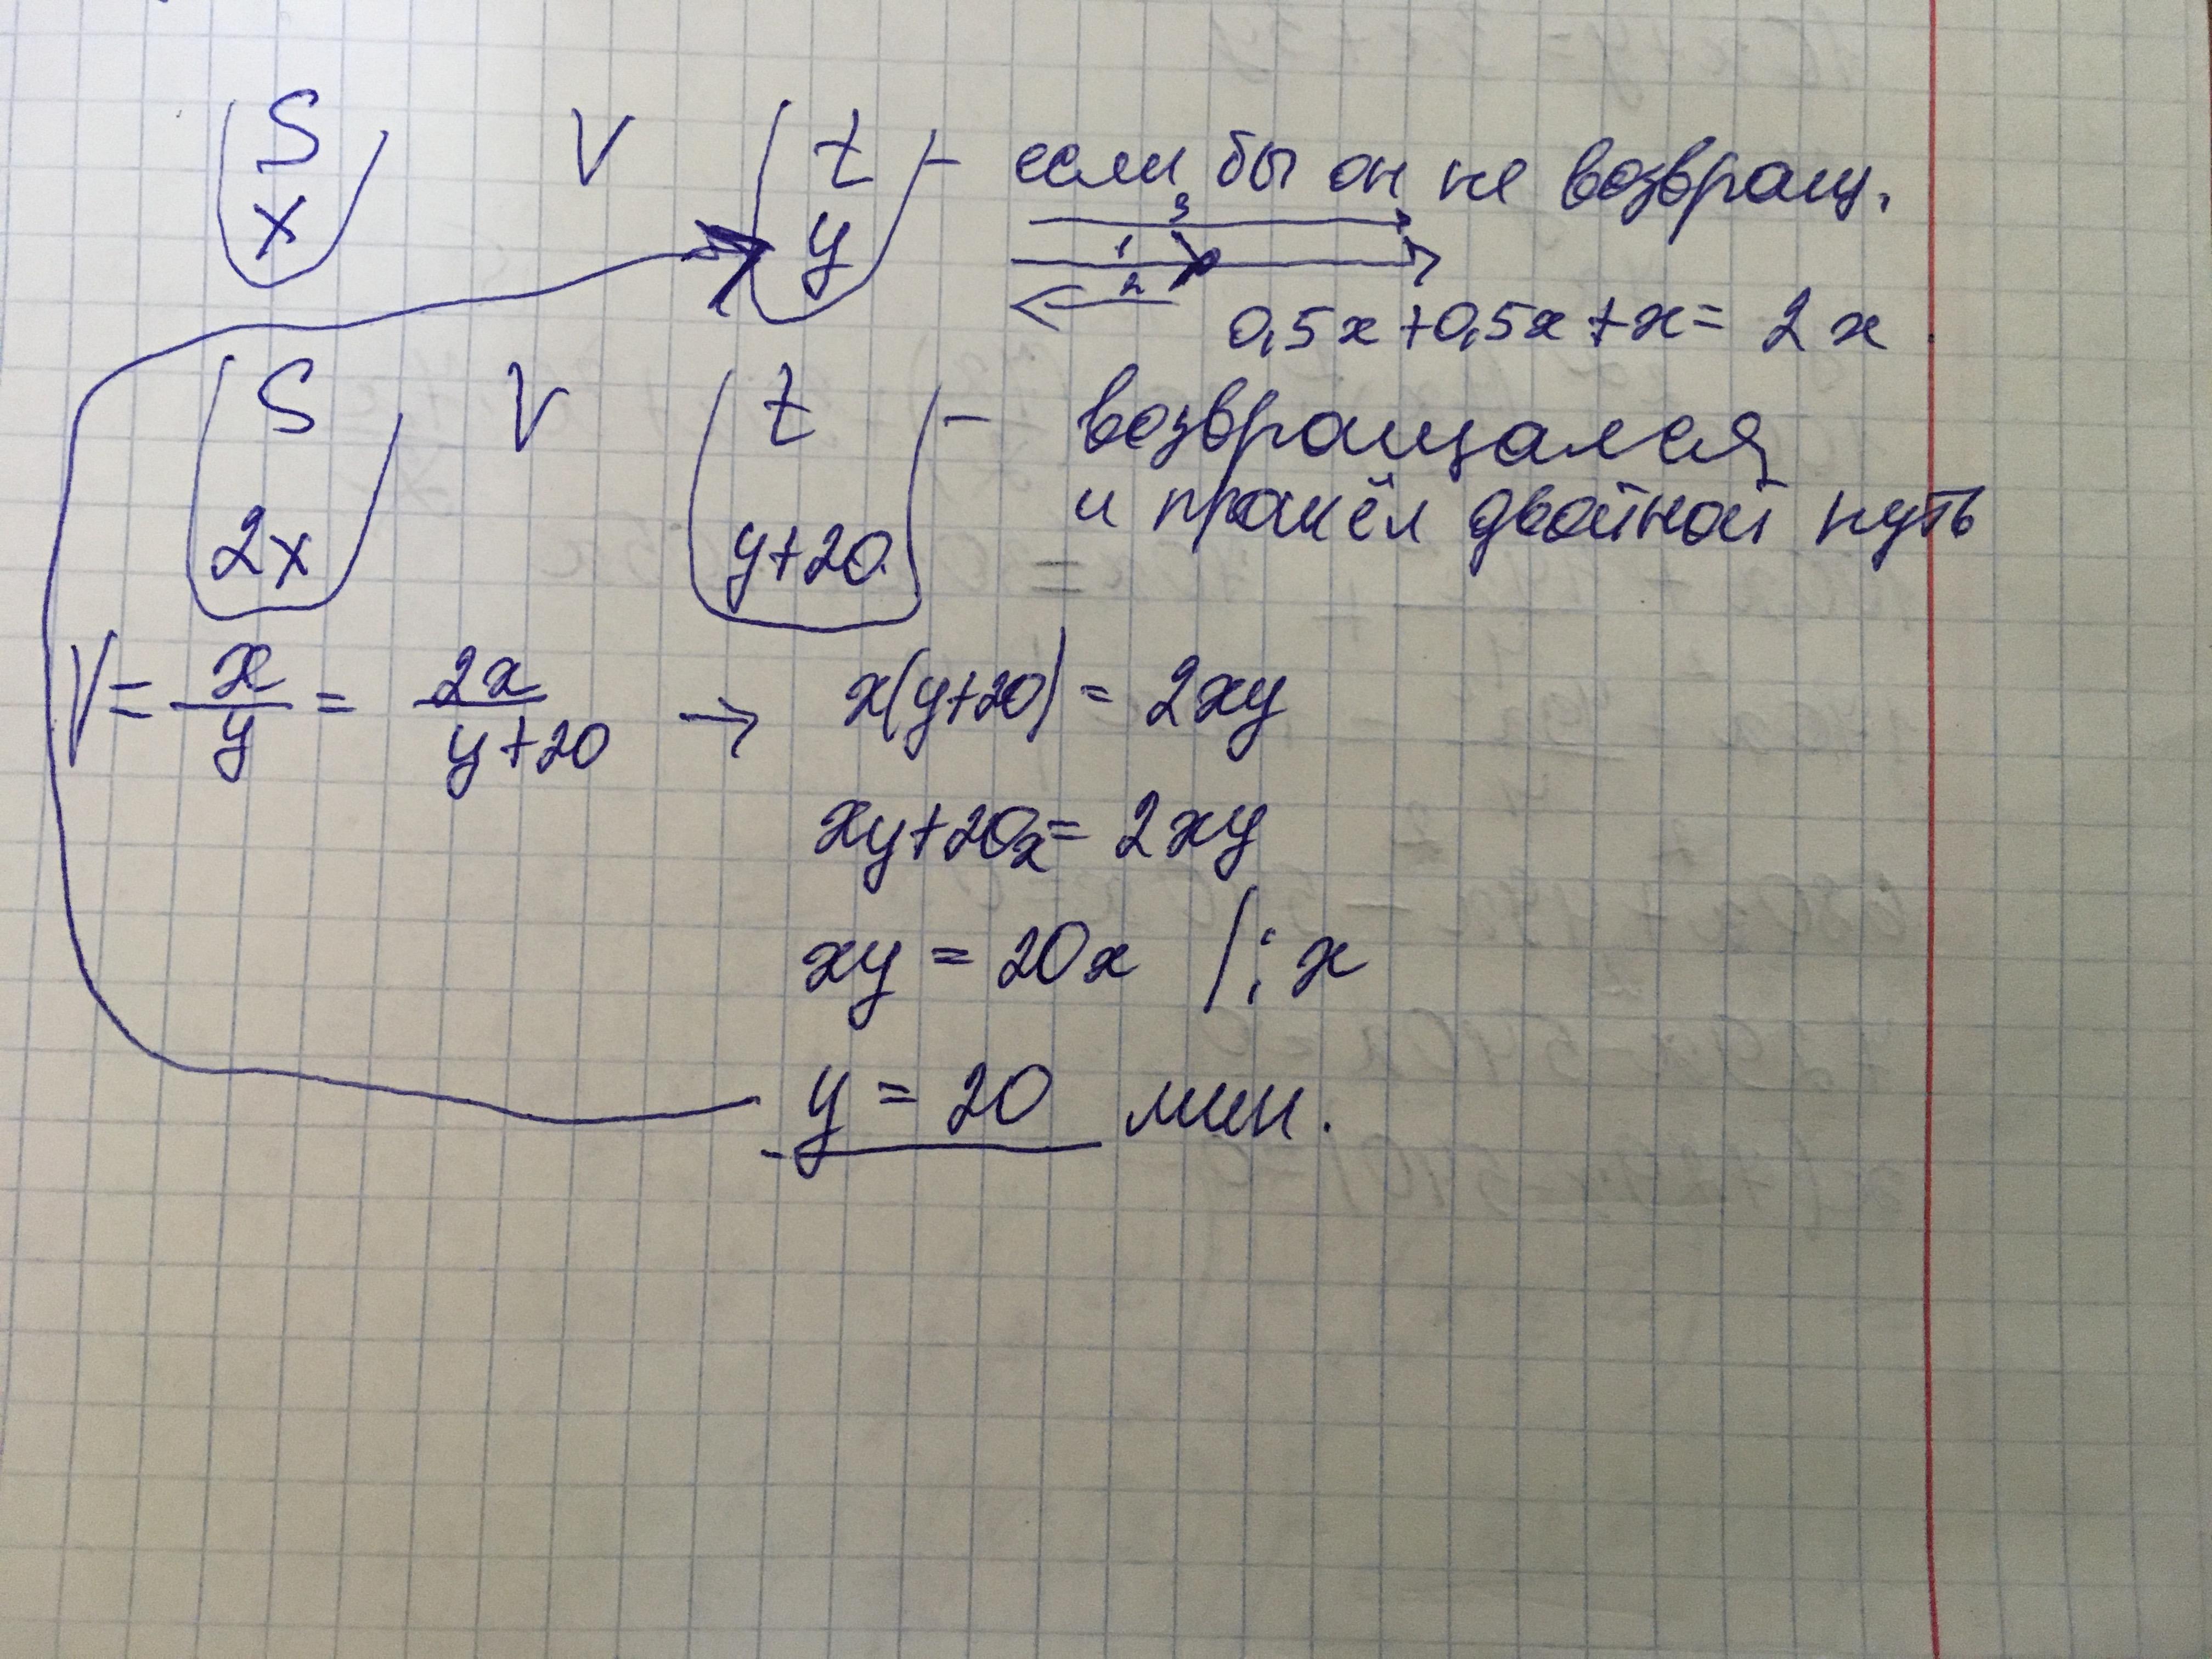 S V t – если бы он не возвращ.
x y
3
1
2
0,5x+0,5x+x= 2x
S V t – возвращался
и прошёл двойной путь
2x y+20
V= x/y = 2x/y+20 → x(y+20)= 2xy
xy+20x= 2xy
xy = 20x |: x
y = 20 мин.